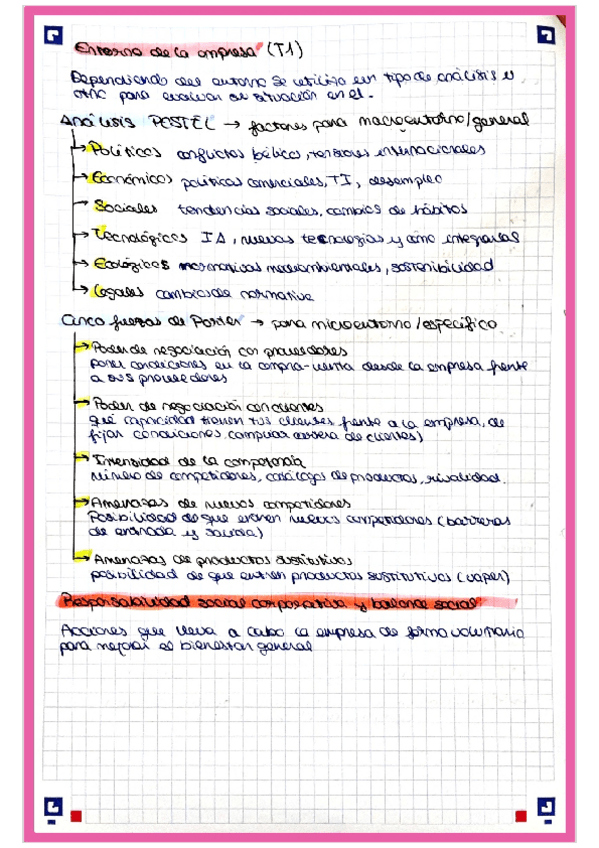 Entorno de la empresa (T1)
Dependiendo del entorno se utiliza un tipo de análisis u
otro para evaluar su situación en el.
Análisis PESTEL → factores para macroentorno/general
→ Políticos conflictos bélicos, tensiones internacionales
→ Económicos políticas comerciales, TI, desempleo
→ Sociales tendencias sociales, cambios de hábitos
→ Tecnológicos IA, nuevas tecnologías y como integrarlas
→ Ecológicos normativas medioambientales, sostenibilidad
→ Legales cambios de normativa
Cinco fuerzas de Porter → para microentorno/específico
→ Poder de negociación con proveedores
poner condiciones en la compra-venta desde la empresa frente
a sus proveedores
→ Poder de negociación con clientes
qué capacidad tienen tus clientes frente a la empresa, de
fijar condiciones, cartera de clientes)
→ Intensidad de la competencia
número de competidores, catálogos de productos, rivalidad.
→ Amenazas de nuevos competidores
Posibilidad de que entren nuevos competidores (barreras
de entrada y salida)
→ Amenazas de productos sustitutivos
posibilidad de que entren productos sustitutivos (vaper)
Responsabilidad social corporativa y balance social
Acciones que lleva a cabo la empresa de forma voluntaria
para mejorar el bienestar general